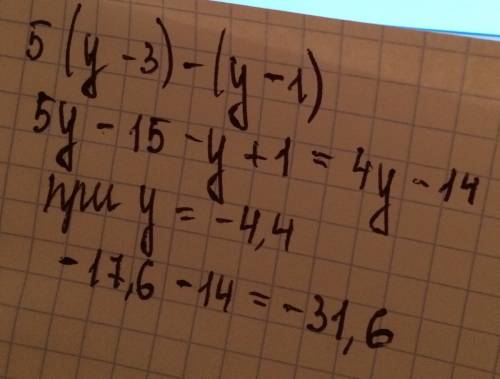 5(y-3)-(y-1)
5y-15-y+1=4y-14
при y=-4,4
-17,6-14=-31,6